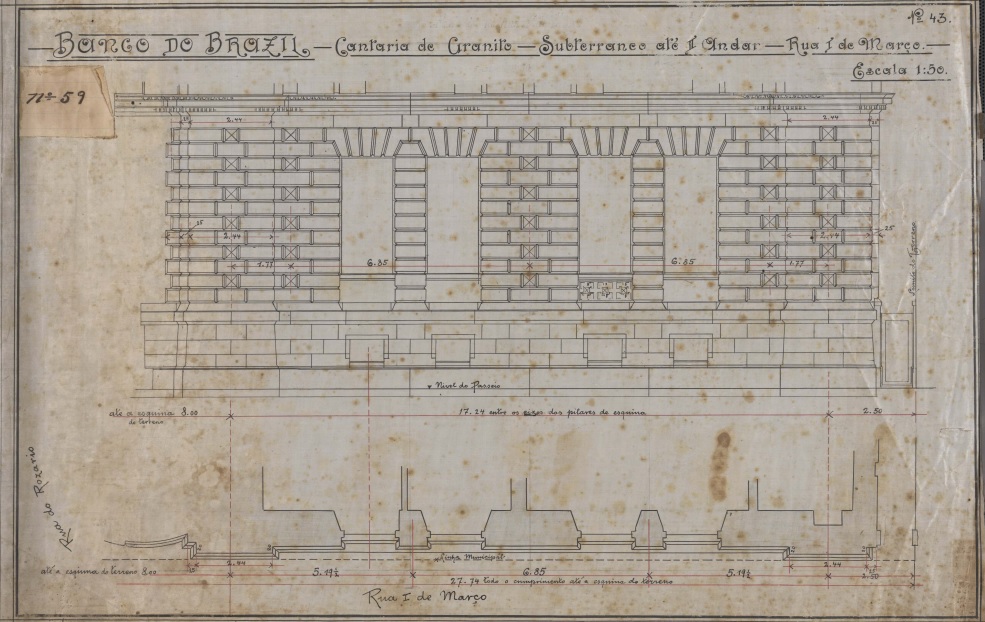 Nº 43.
BANCO DO BRAZIL — Cantaria de Granito — Subterraneo até I Andar — Rua I de Março. —
Escala 1:50.
nº 59
25 2.44 2.44 25
25 2.44 2.44 25
1.77 6.85 6.85 1.77
Nivel do Passeio
até a esquina 8.00 17.24 entre os eixos dos pilares de esquina 2.50
do terreno
Rua do Rozario
Linha Municipal
2.44 2.44
até a esquina do terreno 8.00 5.19½ 6.85 5.19½ 2.50
27.74 todo o comprimento até a esquina do terreno
Rua I de Março